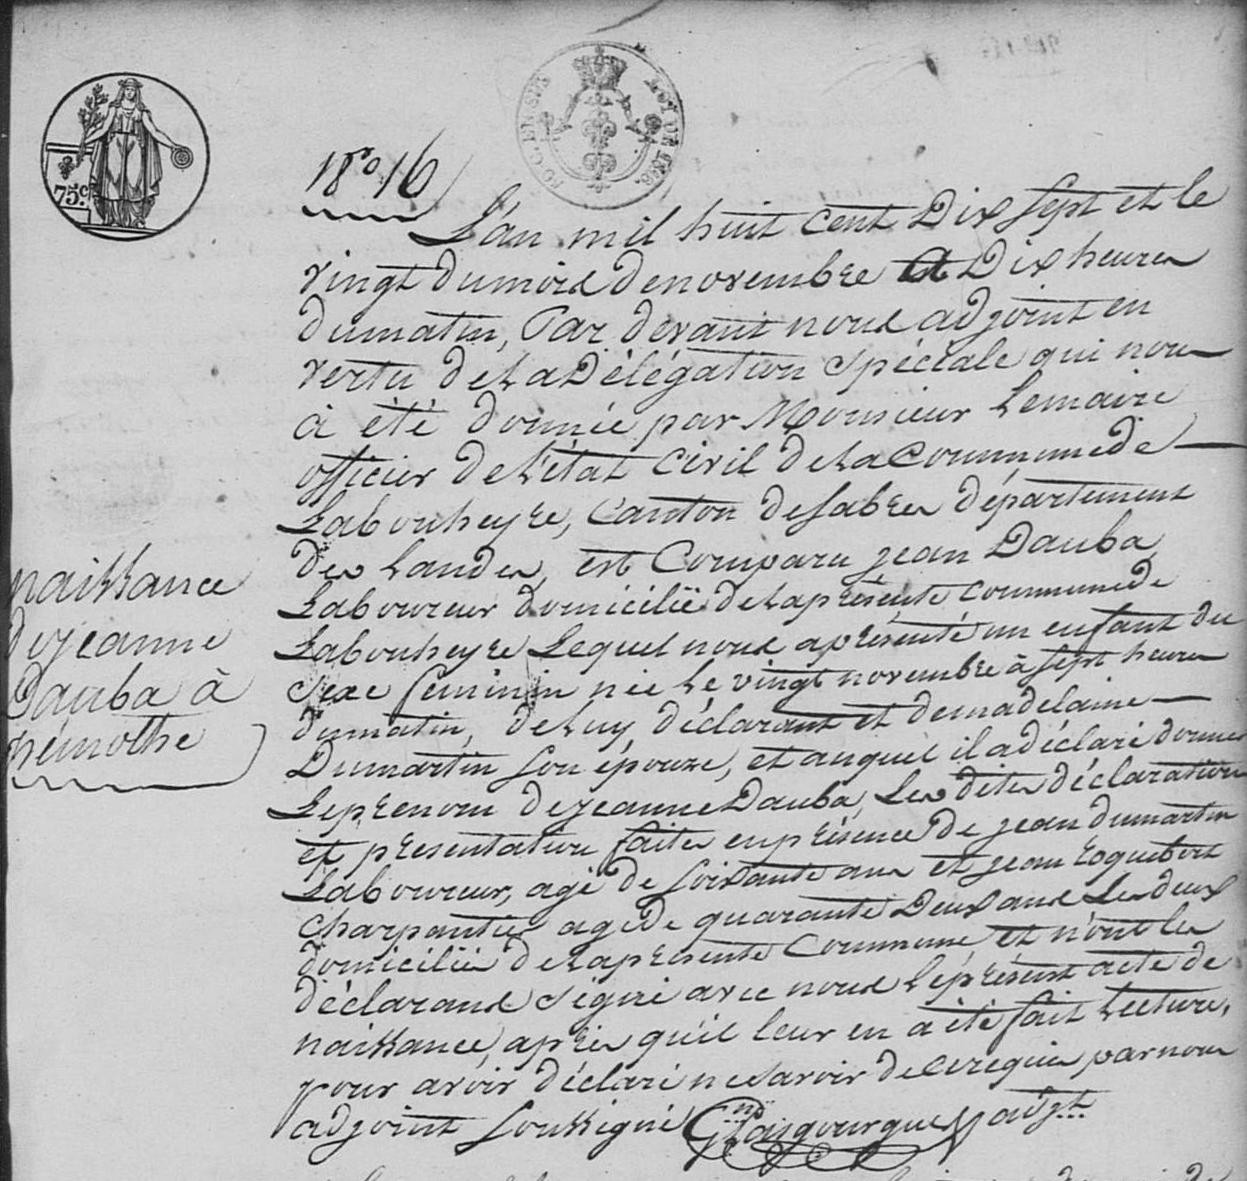 75.c
TIMBRE ROYAL
LOI DE 1816.
No. 16
L'an mil huit cent Dix sept et le
vingt du mois de novembre a Dix heures
du matin, Par devant nous adjoint en
vertu de la Délégation spéciale qui nous
à été donnée par Monsieur Lemaire
officier de l'état Civil de la Commune de
Labouheyre, Canton de Sabres département
des Landes, est Comparu jean Dauba,
Laboureur domicilié de la présente commune de
Labouheyre Lequel nous a présenté un enfant du
Sexe feminin née le vingt novembre à sept heures
du matin, de luy déclarant et de madelaine
Dumartin son épouze, et auquel il a déclaré donner
Le prenom de jeanne Dauba, Les dites déclaration
et présentation faites en présence de jean dumartin
Laboureur, agé de soixante ans et jean roquebert
Charpantier agé de quarante Deux ans Les deux
domiciliés de la présente Commune et n'ont les
déclarans signé avec nous le présent acte de
naissance, après qu'il leur en a été fait Lecture,
pour avoir déclaré ne savoir de ce requis par nous
adjoint soussigné adjt
naissance
de jeanne
Dauba à